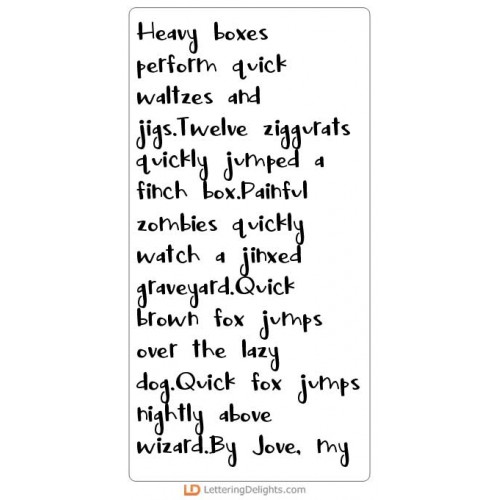 Heavy boxes
perform quick
waltzes and
jigs.Twelve ziggurats
quickly jumped a
finch box.Painful
zombies quickly
watch a jinxed
graveyard.Quick
brown fox jumps
over the lazy
dog.Quick fox jumps
nightly above
wizard.By Jove, my
LD LetteringDelights.com